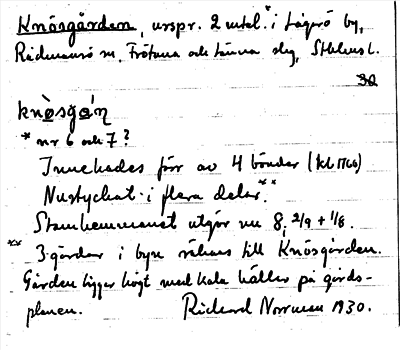 Knösgården, urspr. 2 mtal.* i Lagnö by,
Rådmansö sn, Frötuna och Länna slg, Sthlms l.
30
knòsgán
* nr 6 och 7?
Innehades förr av 4 bönder (kl 1766)
Nu stychat i flera delar.**
Stamhemmanet utgör nu 8, 2/9 + 1/8.
** 3 gårdar i byn räknas till Knösgården.
Gården ligger högt med kala hällar på gårds-
planen. Richard Norrman 1930.